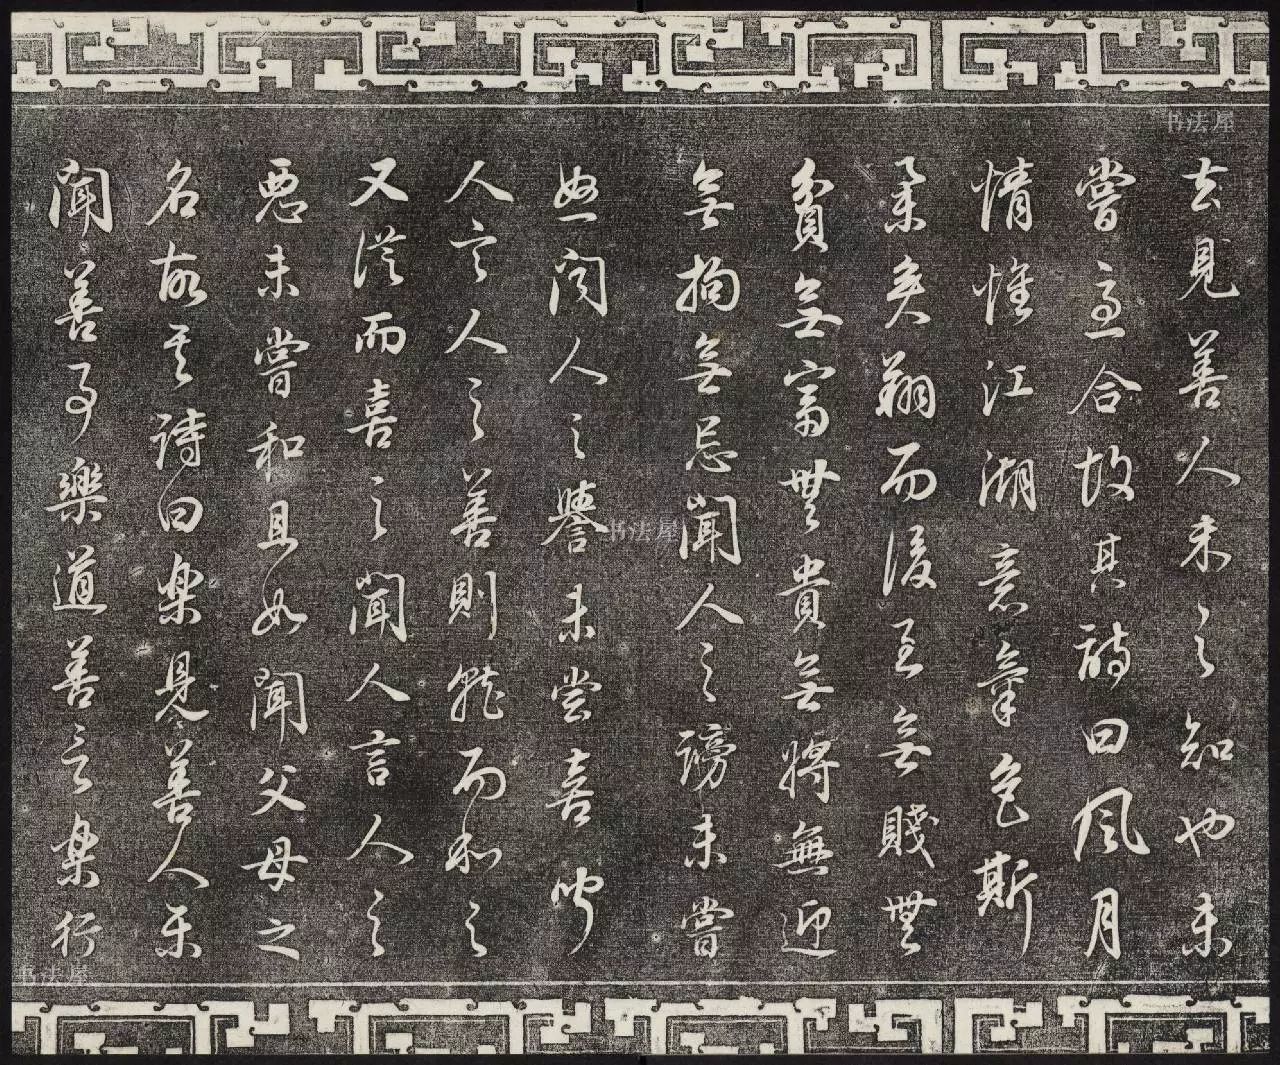 去見善人未之知也未
嘗急合故其詩曰風月
情懷江湖意氣色斯
舉矣翔而後至無賤無
貧無富無貴無將無迎
無拘無忌聞人之謗未嘗
怒聞人之譽未嘗喜聞
人言人之善則就而和之
又從而喜之聞人言人之
惡未嘗和且如聞父母之
名故其詩曰樂見善人樂
聞善事樂道善言樂行
书法屋
书法屋
书法屋